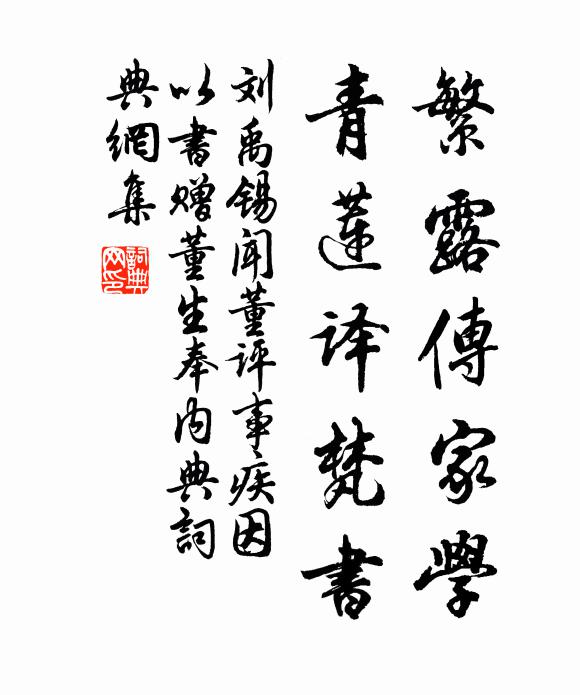 繁露傳家學
青蓮译梵書
刘禹锡闻董评事疾因
以書赠董生奉内典詞
典網集
詞典网印